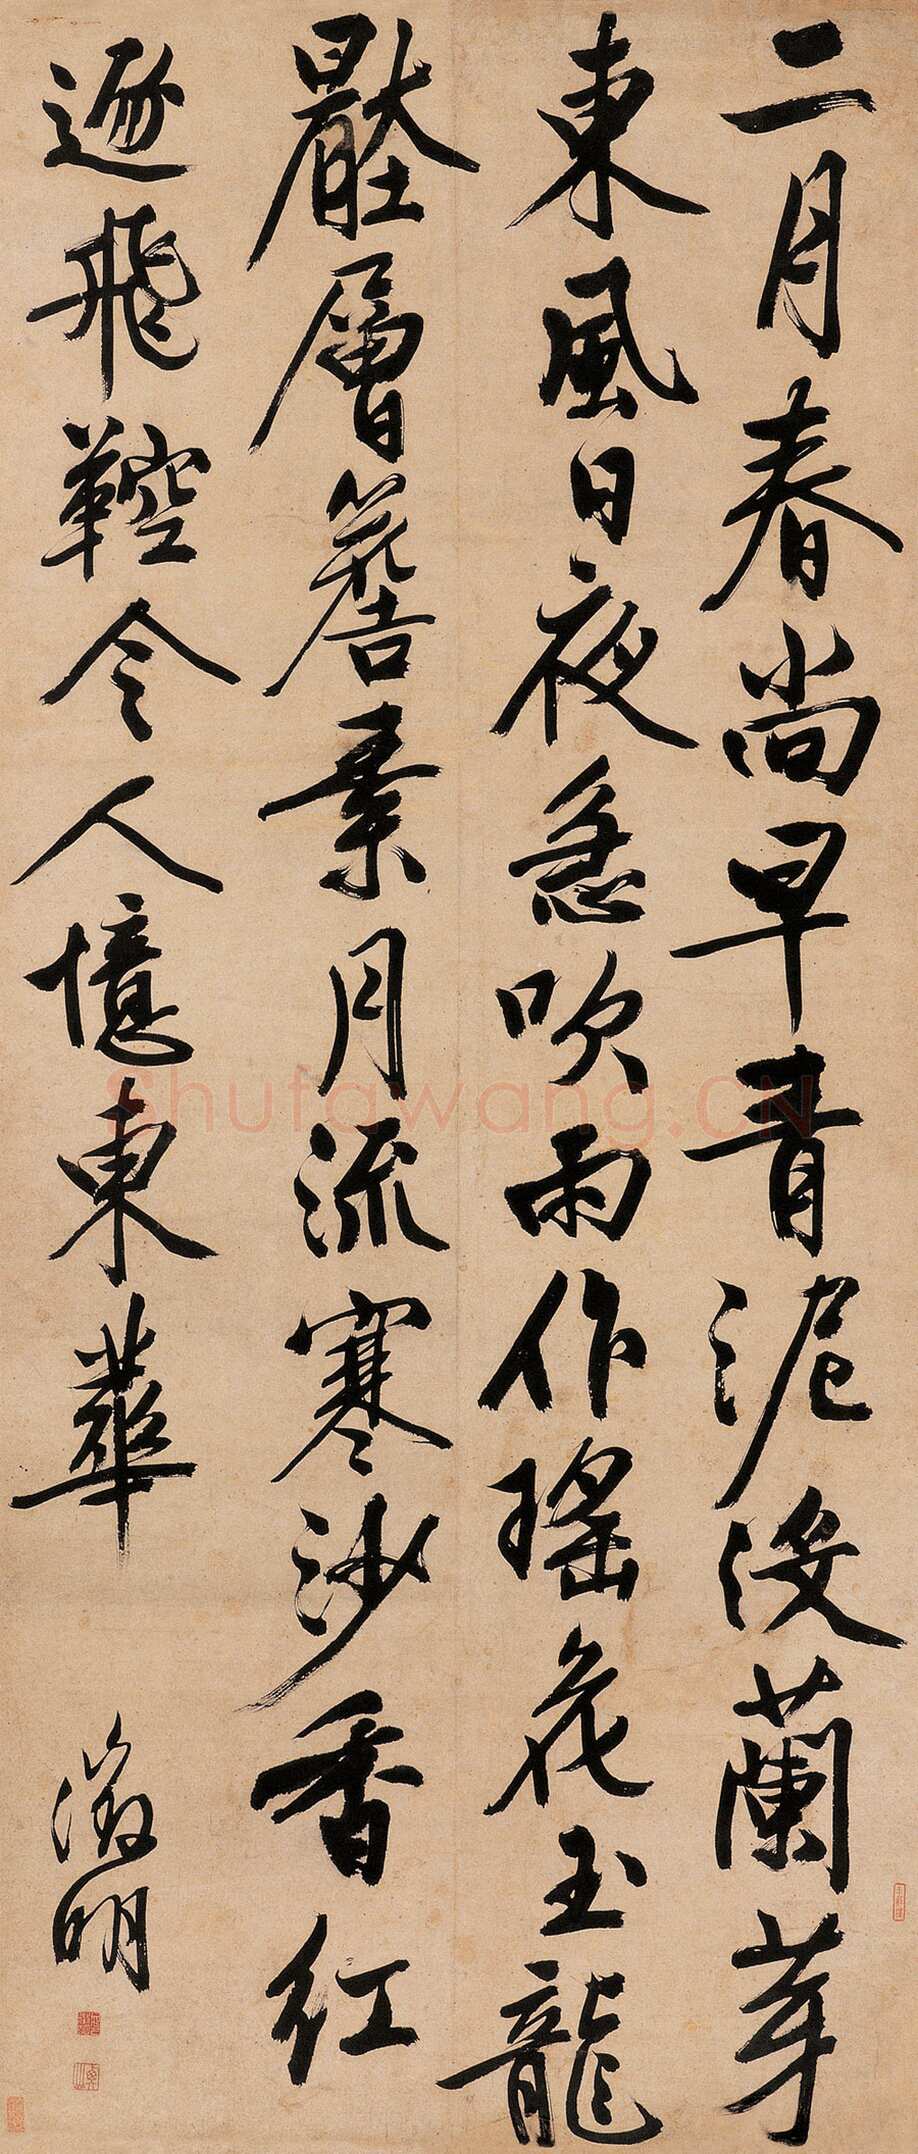 二月春尚早青泥没蘭芽
東風日夜急吹雨作瑤花玉龍
壓層簷素月流寒沙香紅
逐飛鞚令人憶東華
徵明
Shufawang.CN